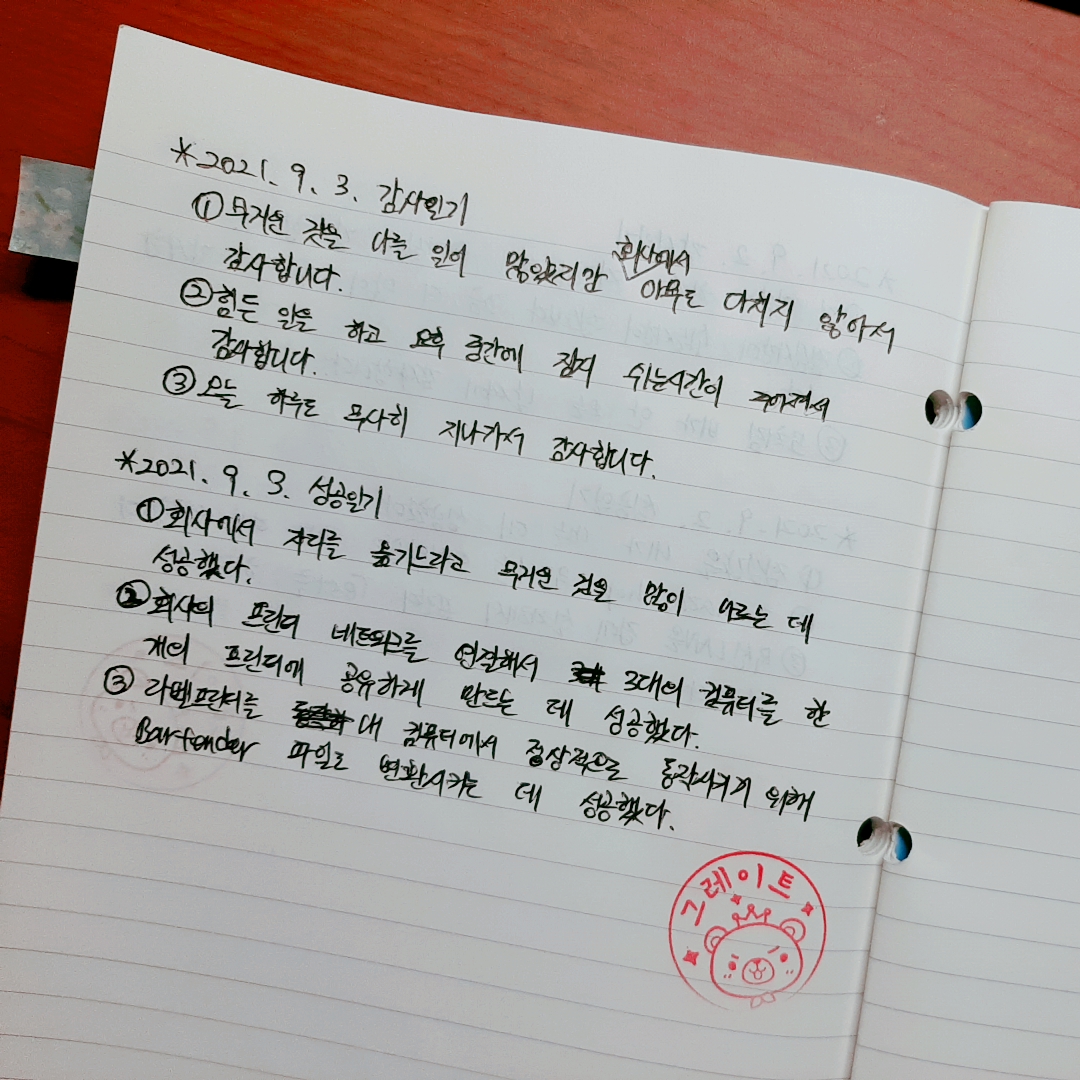 *2021. 9. 3. 감사일기
① 무거운 것을 나를 일이 많았지만 회사에서 아무도 다치지 않아서
감사합니다.
② 힘든 일을 하고 오후 중간에 잠시 쉬는시간이 주어져서
감사합니다.
③ 오늘 하루도 무사히 지나가서 감사합니다.
*2021. 9. 3. 성공일기
① 회사에서 자리를 옮기느라고 무거운 것을 많이 나르는 데
성공했다.
② 회사의 프린터 네트워크를 연결해서 3대의 컴퓨터를 한
개의 프린터에 공유하게 만드는 데 성공했다.
③ 라벨프린터를 내 컴퓨터에서 정상적으로 동작시키기 위해
Bartender 파일로 변환시키는 데 성공했다.
그레이트